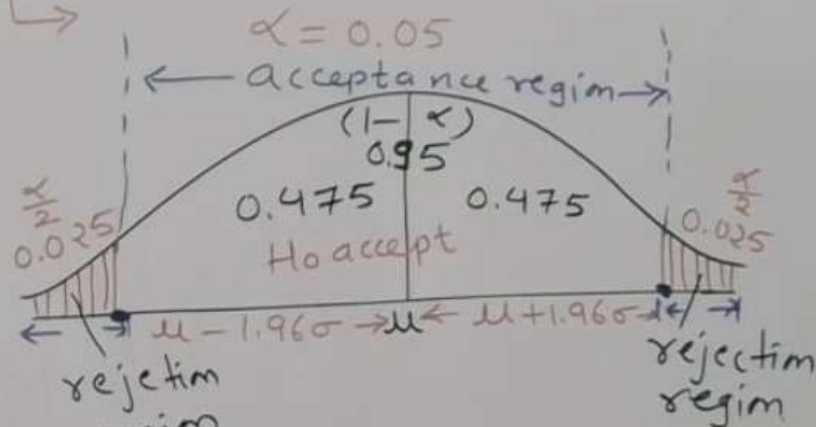 α = 0.05
acceptance regim
(1 - α)
0.95
α/2
0.025
0.475
0.475
α/2
0.025
Ho accept
μ - 1.96σ
μ
μ + 1.96σ
rejetim
regim
rejectim
regim